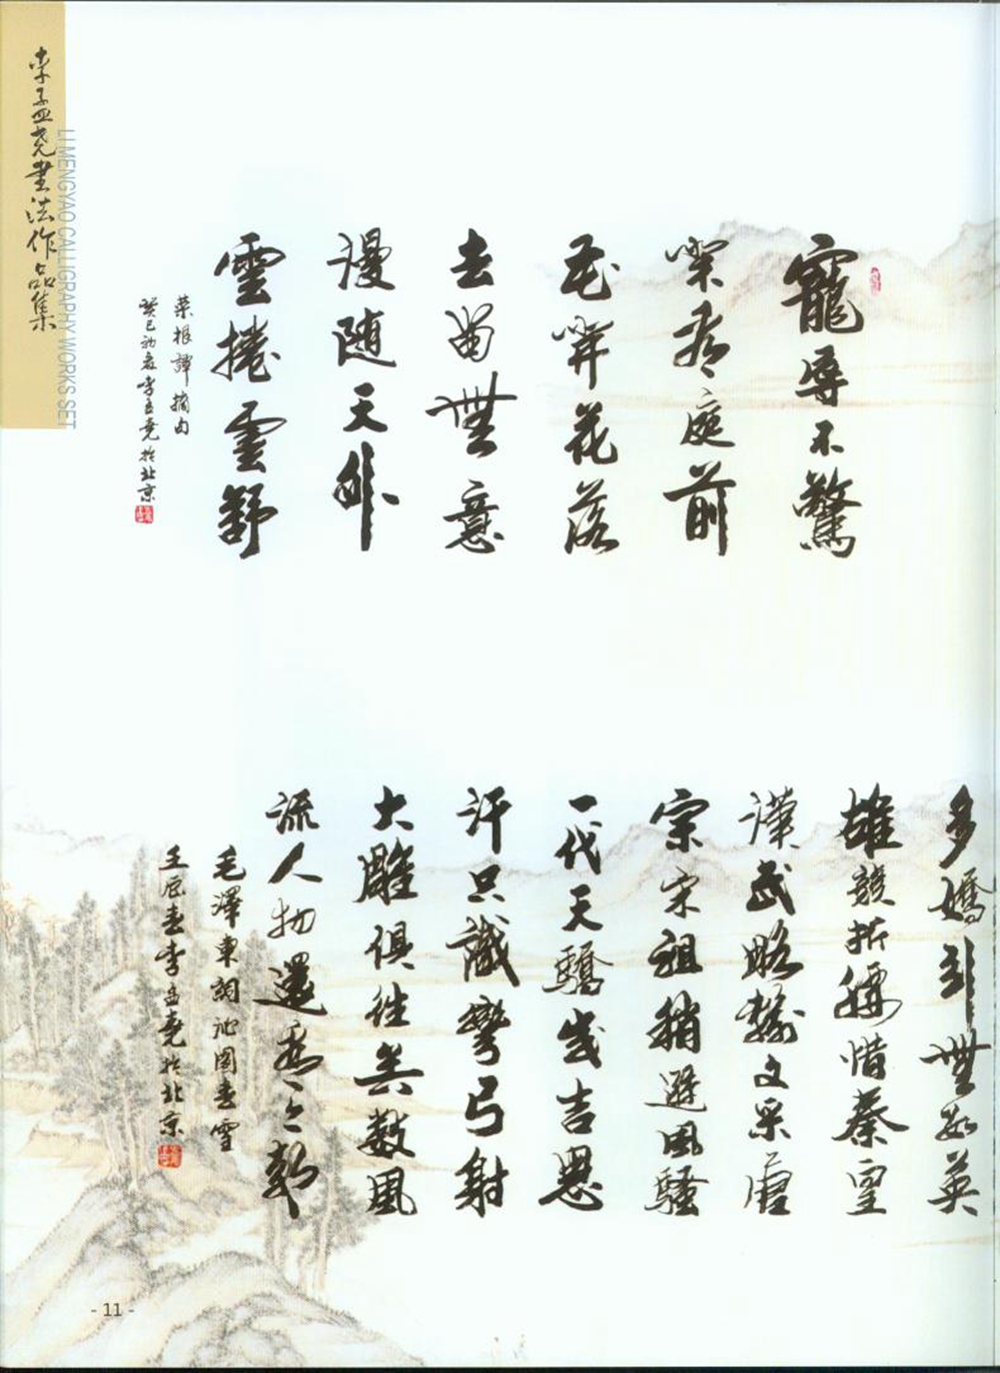 李孟尧書法作品集
LI MENGYAO CALLIGRAPHY WORKS SET
寵辱不驚
閑看庭前
花開花落
去留無意
漫随天外
雲捲雲舒
菜根譚摘句
癸巳初夏李孟堯於北京
多嬌引無數英
雄競折腰惜秦皇
漢武略輸文采唐
宗宋祖稍遜風騷
一代天驕成吉思
汗只識彎弓射
大雕俱往矣數風
流人物還看今朝
毛澤東詞沁園春雪
壬辰春李孟堯於北京
- 11 -